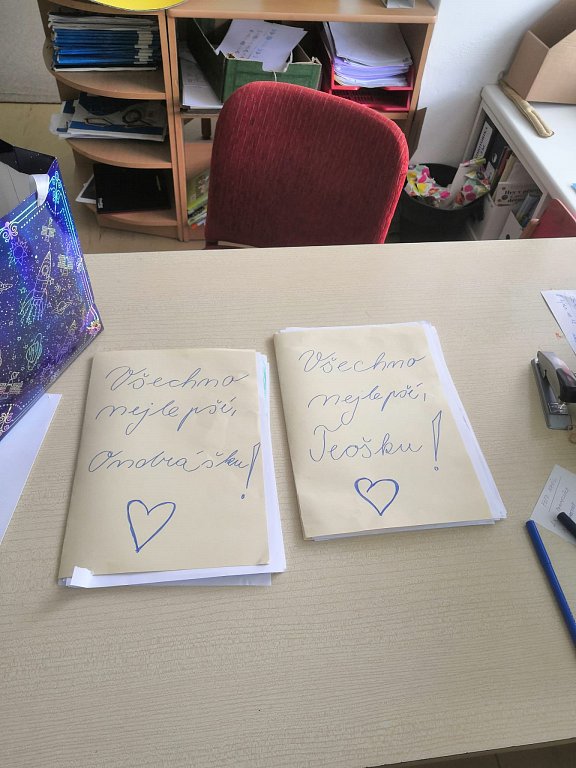 Všechno
nejlepší,
Ondrášku!
Všechno
nejlepší,
Teošku!